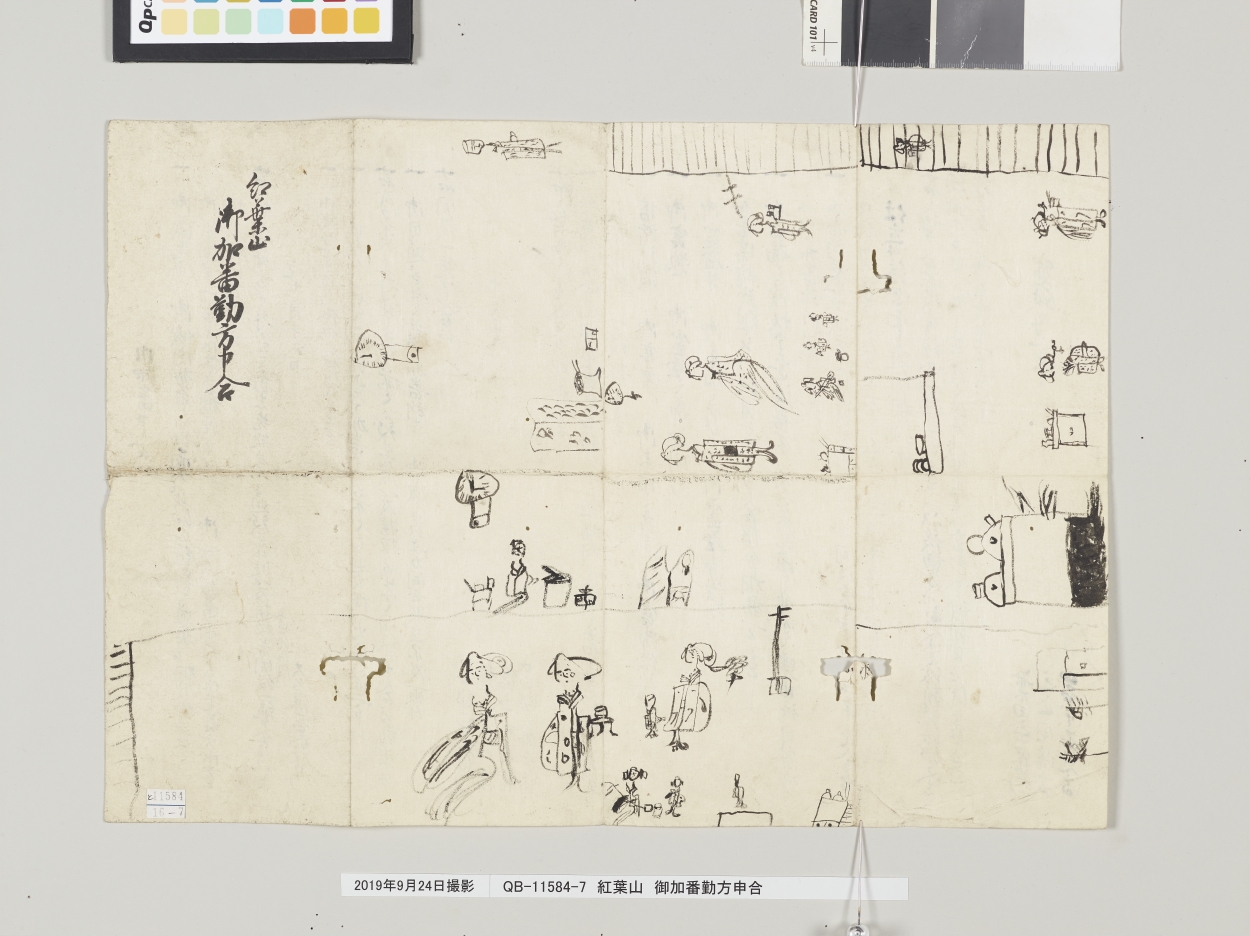 紅葉山
御加番勤方申合
キ
11584
16-7
2019年9月24日撮影 QB-11584-7 紅葉山 御加番勤方申合
QPC
CARD 101 v4